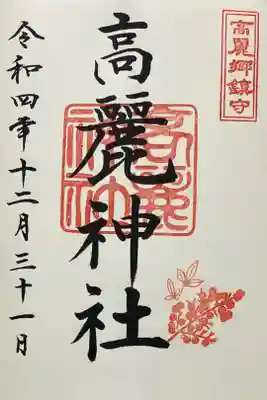 高麗郷鎮守
高麗神社
令和四年十二月三十一日